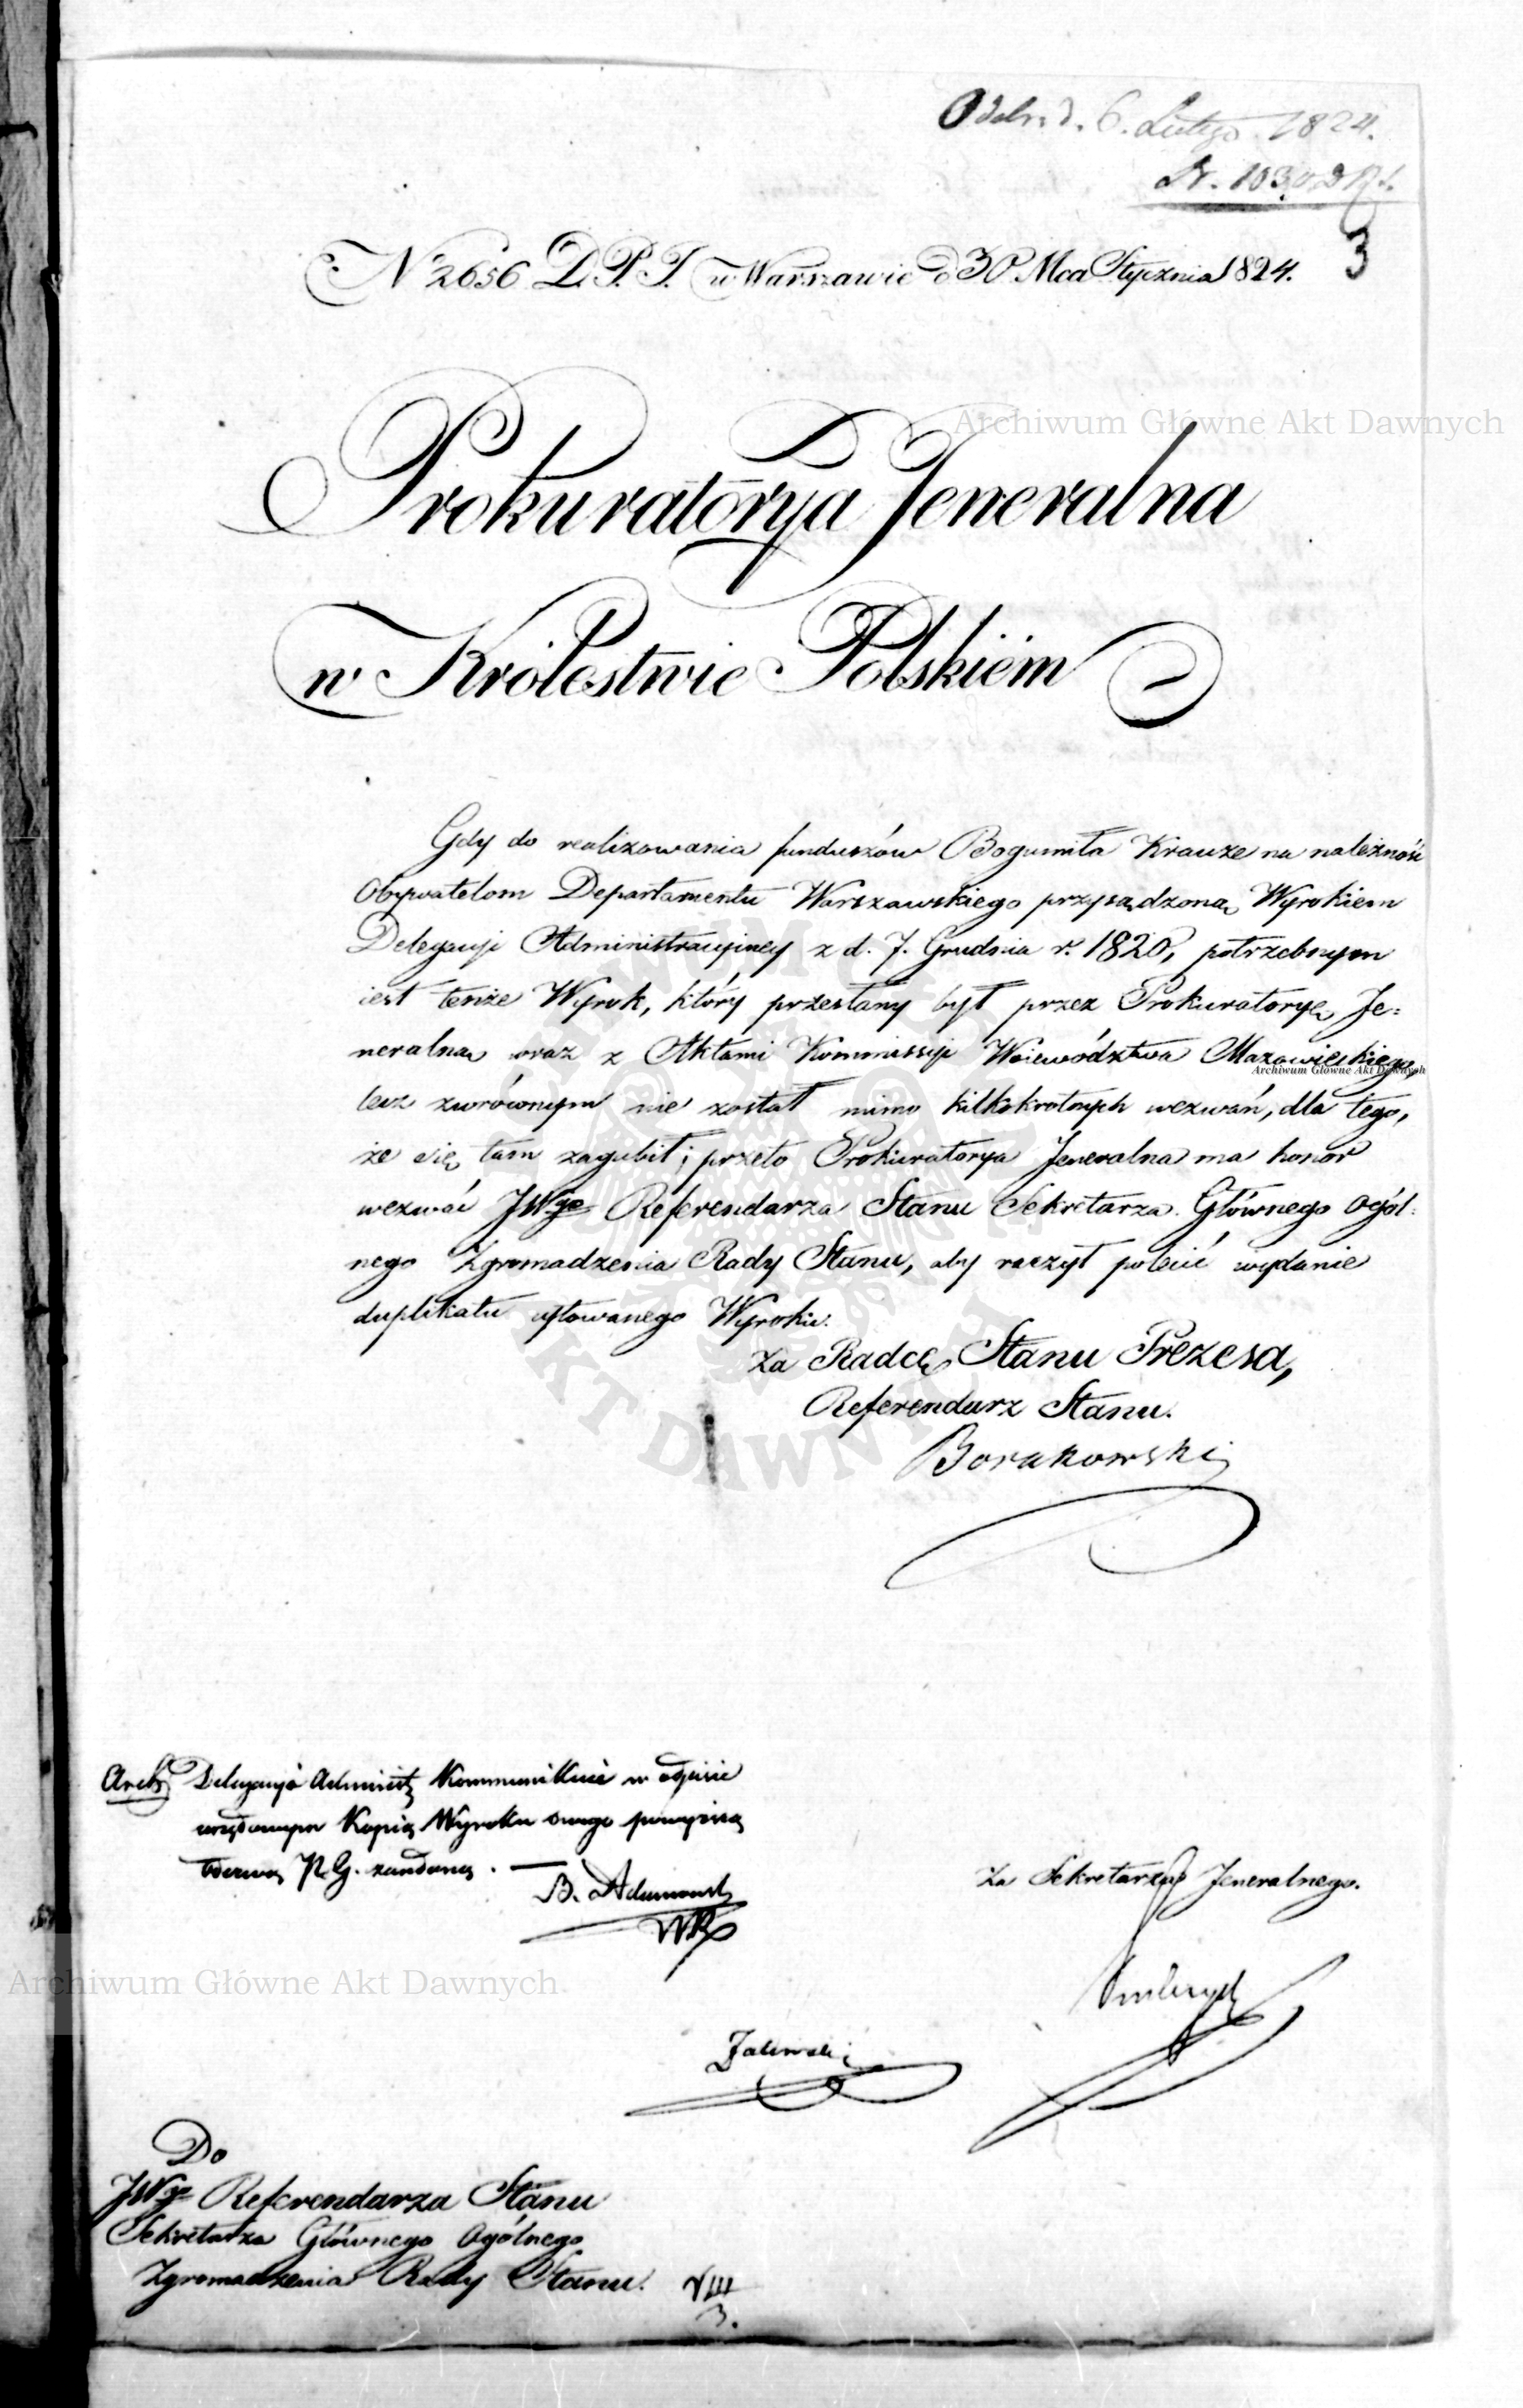 Odebr. d. 6. Lutego. 1824.
Nr. 1030
3
N 2656 D.P.J. w Warszawie d 30 Mca Stycznia 1824.
Archiwum Główne Akt Dawnych
Prokuratorya Jeneralna
w Królestwie Polskiém
Gdy do realizowania funduszów Bogumiła Krauze na należność
Obywatelom Departamentu Warszawskiego przysądzoną Wyrokiem
Delegacyi Administracyiney z d. 7. Grudnia r. 1820, potrzebnym
iest tenże Wyrok, który przesłany był przez Prokuratoryę Je=
neralną oraz z Aktami Kommissyi Woiewództwa Mazowieckiego,
Archiwum Główne Akt Dawnych
lecz zwróconym nie został mimo kilkokrotnych wezwań, dla tego,
że się tam zagubił; przeto Prokuratorya Jeneralna ma honor
wezwać JWgo Referendarza Stanu Sekretarza Głównego Ogól=
nego Zgromadzenia Rady Stanu, aby raczył polecić wydanie
duplikatu cytowanego Wyroku.
za Radcę Stanu Prezesa,
Referendarz Stanu.
Borakowski
AKT DAWNYCH
Delegacyia Administ. Kommunikuie w odpisie
urzędowym Kopią Wyroku swego powyższą
P. G. żądaną. —
B. Adamowski
za Sekretarza Jeneralnego.
Archiwum Główne Akt Dawnych
Zalewski
Do
JWgo Referendarza Stanu
Sekretarza Głównego Ogólnego
Zgromadzenia Rady Stanu.
VIII
3.